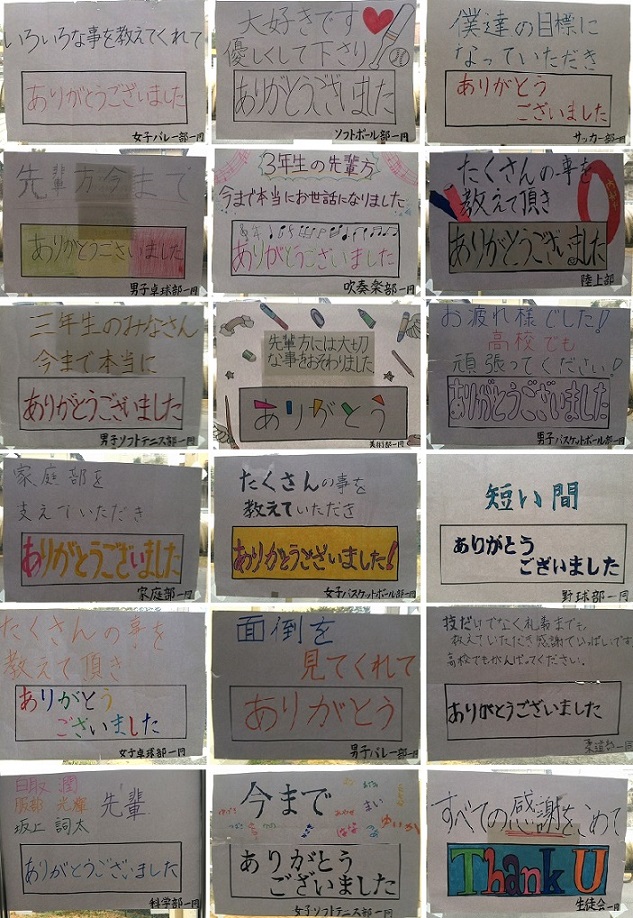 いろいろな事を教えてくれて
ありがとうございました
女子バレー部一同
大好きです
優しくして下さり
ありがとうございました
ソフトボール部一同
僕達の目標に
なっていただき
ありがとう
ございました
サッカー部一同
先輩方今まで
ありがとうございました
男子卓球部一同
3年生の先輩方
今まで本当にお世話になりました
ありがとうございました
吹奏楽部一同
たくさんの事を
教えて頂き
ありがとうございました
陸上部
三年生のみなさん
今まで本当に
ありがとうございました
男子ソフトテニス部一同
先輩方には大切
な事をおそわりました
ありがとう
美術部一同
お疲れ様でした!
高校でも
頑張ってください!
ありがとうございました
男子バスケットボール部一同
家庭部を
支えていただき
ありがとうございました
家庭部一同
たくさんの事を
教えていただき
ありがとうございました!
女子バスケットボール部一同
短い間
ありがとう
ございました
野球部一同
たくさんの事を
教えて頂き
ありがとう
ございました
女子卓球部一同
面倒を
見てくれて
ありがとう
男子バレー部一同
技だけでなく礼事までも
教えていただき感謝でいっぱいです
高校でもがんばってください。
ありがとうございました
柔道部一同
白取 潤
服部 光
坂上 詞太
先輩
ありがとうございました
科学部一同
今まで
まい
はな
ゆいか
ありがとう
ございました
女子ソフトテニス部一同
すべての感謝をこめて
Thank U
生徒会一同